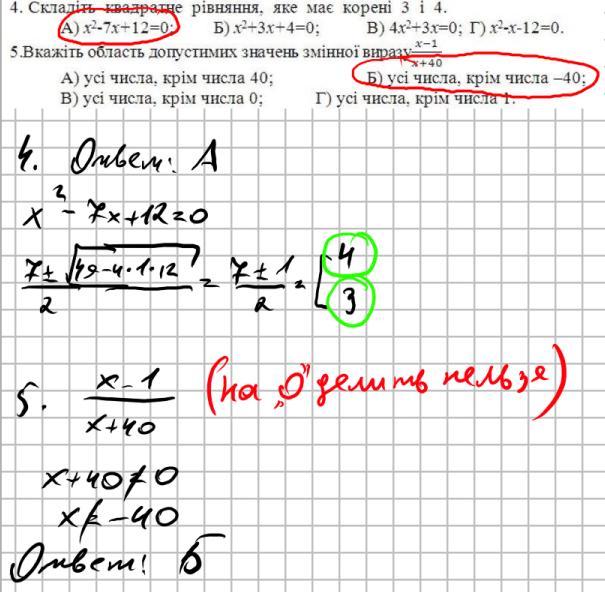 4. Складіть квадратне рівняння, яке має корені 3 і 4.
А) x²-7x+12=0; Б) x²+3x+4=0; В) 4x²+3x=0; Г) x²-x-12=0.
5.Вкажіть область допустимих значень змінної виразу x−1/x+40
А) усі числа, крім числа 40; Б) усі числа, крім числа –40;
В) усі числа, крім числа 0; Г) усі числа, крім числа 1.
4. Ответ: А
x² - 7x+12=0
7±√49-4·1·12/2 = 7±1/2 = [4
3
5. x-1/x+40 (на „0" делить нельзя)
x+40≠0
x≠-40
Ответ: Б